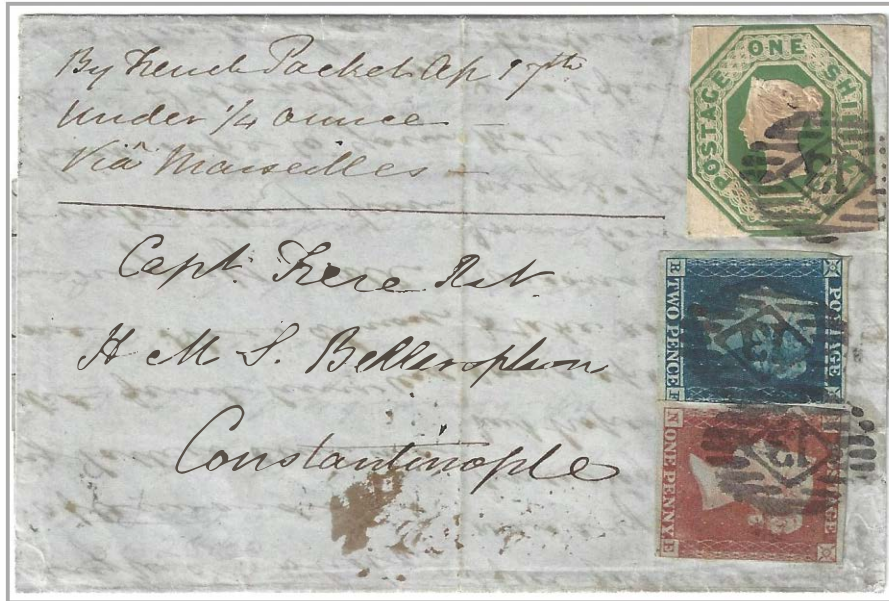 By French Packet Ap 17th
Under 1/4 ounce
Viâ Marseilles
Capt. Frere R.N.
H M S. Bellerophon
Constantinople
POSTAGE ONE SHILLING
13
POSTAGE
TWO PENCE
13
POSTAGE
ONE PENNY
13